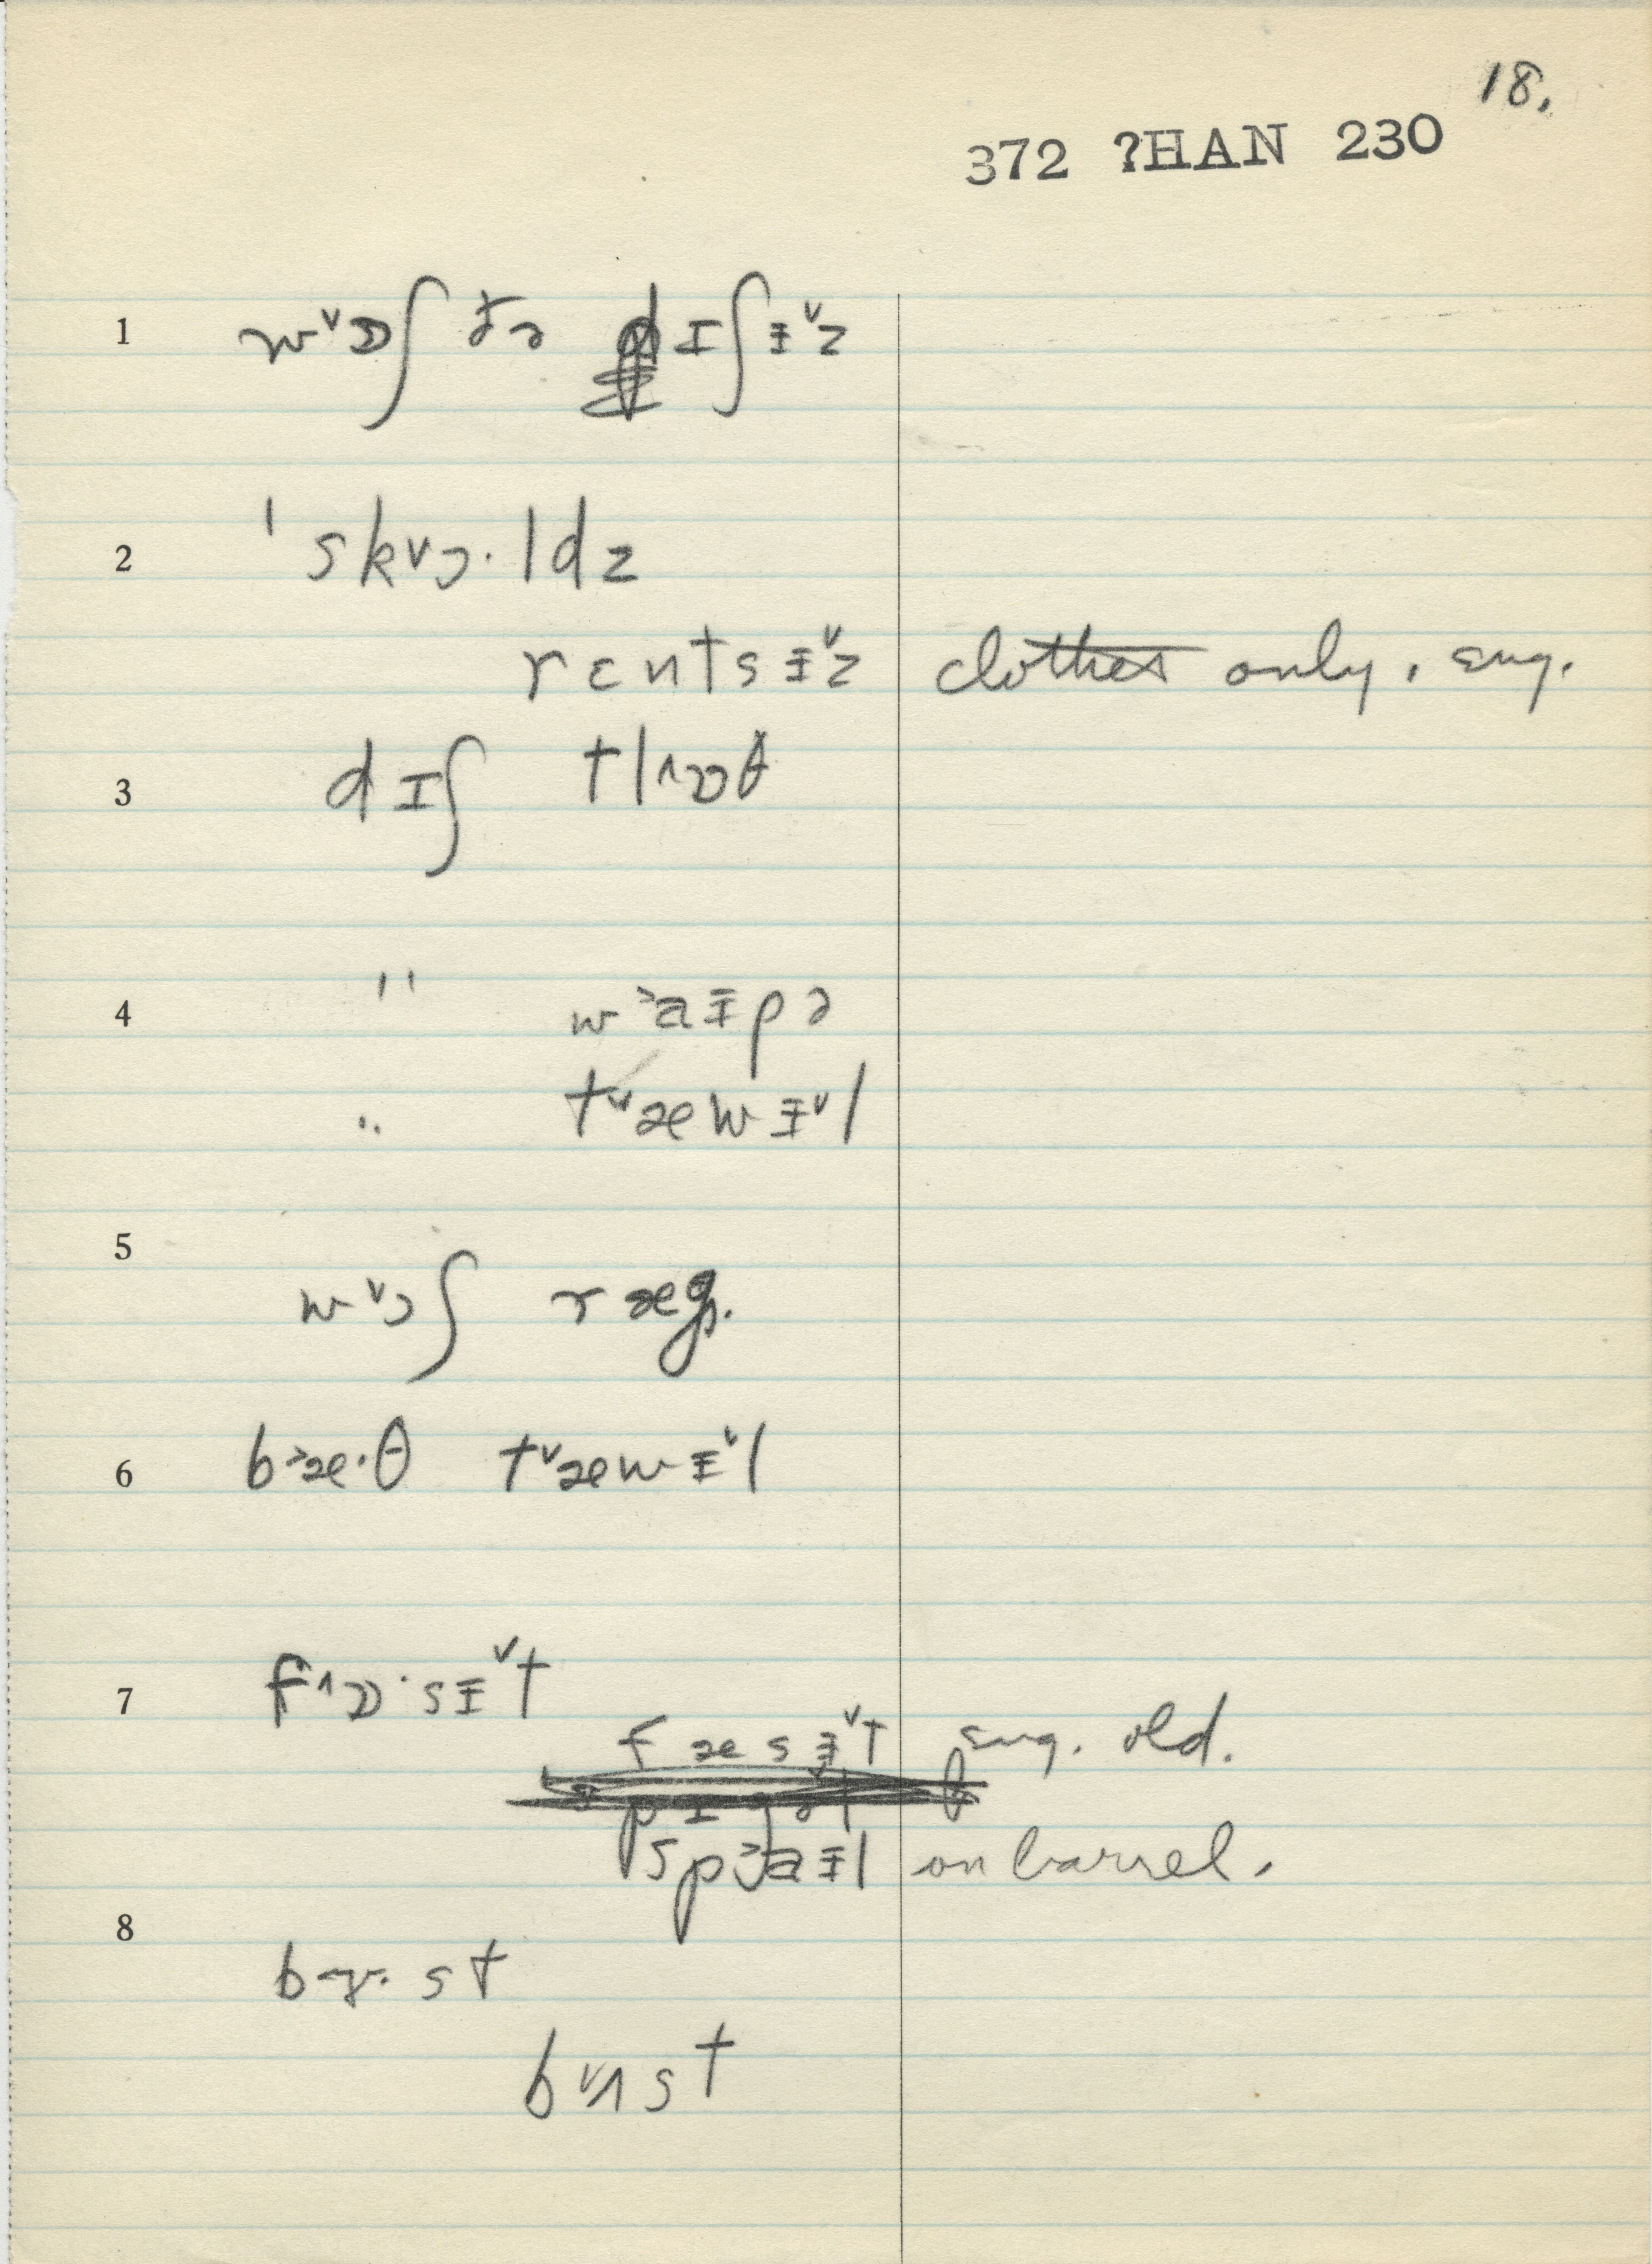 18.
372 ?HAN 230
1 wᵛɒʃ ðə dɪʃɨᵛz
2 ˈskᵛɔ·ldz
rɛntsɨᵛz clothes only, sug.
3 dɪʃ tl^ɒθ
4 " w˃aɨpə
" tᵛæwɨᵛl
5 wᵛɔʃ ræg.
6 b˃æ·θ tᵛæwɨᵛl
7 f^ɒ·sɨᵛt
fæsɨᵛt sug. old.
sp˃aɨl on barrel.
8 bɝ·st
bᵛʌst